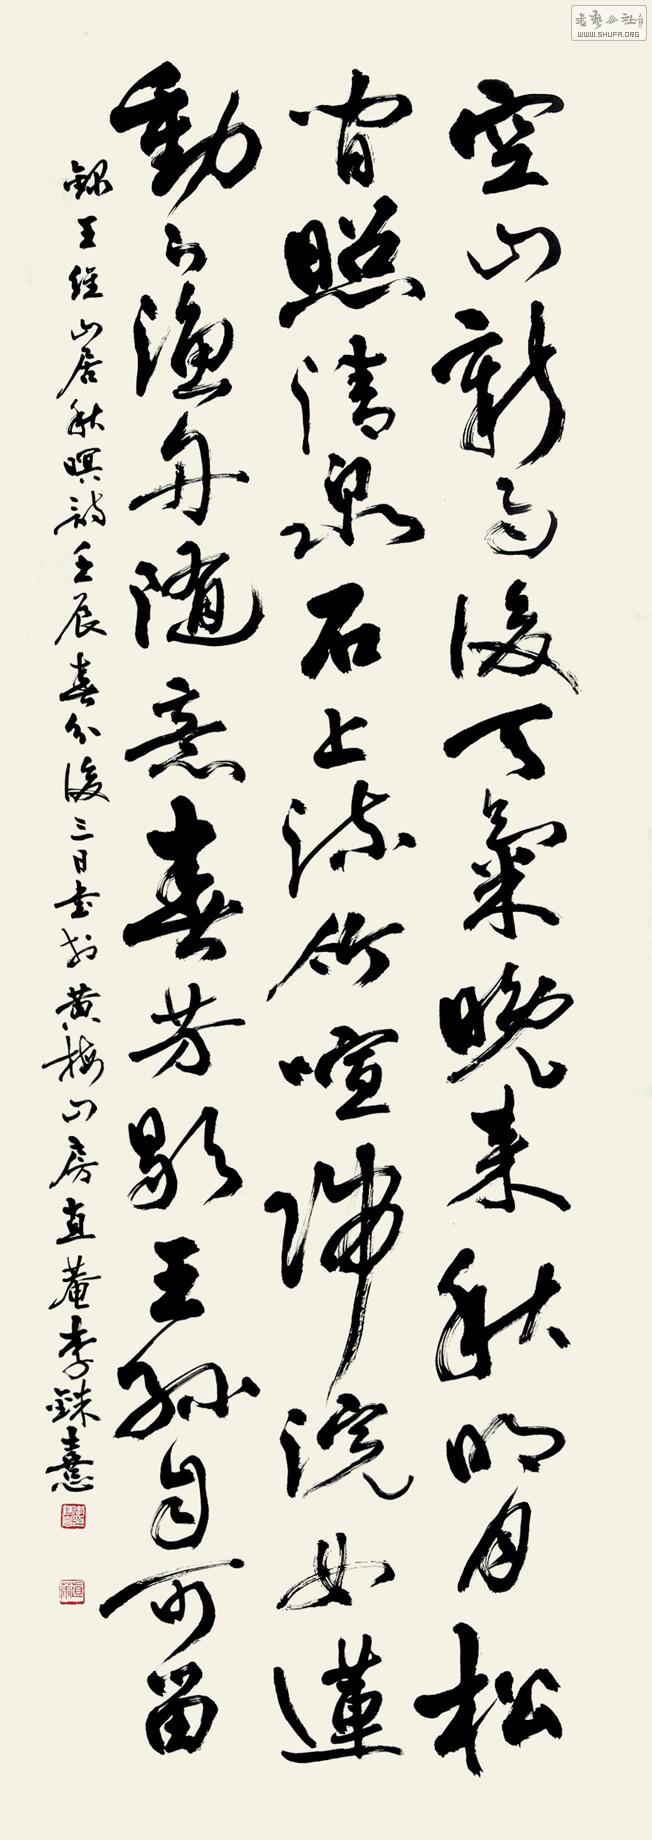 空山新雨後天氣晚来秋明月松
間照清泉石上流竹喧歸浣女蓮
動下漁舟随意春芳歇王孫自可留
録王維山居秋暝詩壬辰春分後三日書於黄梅山房直菴李銖憙
書藝公社
WWW.SHUFA.ORG